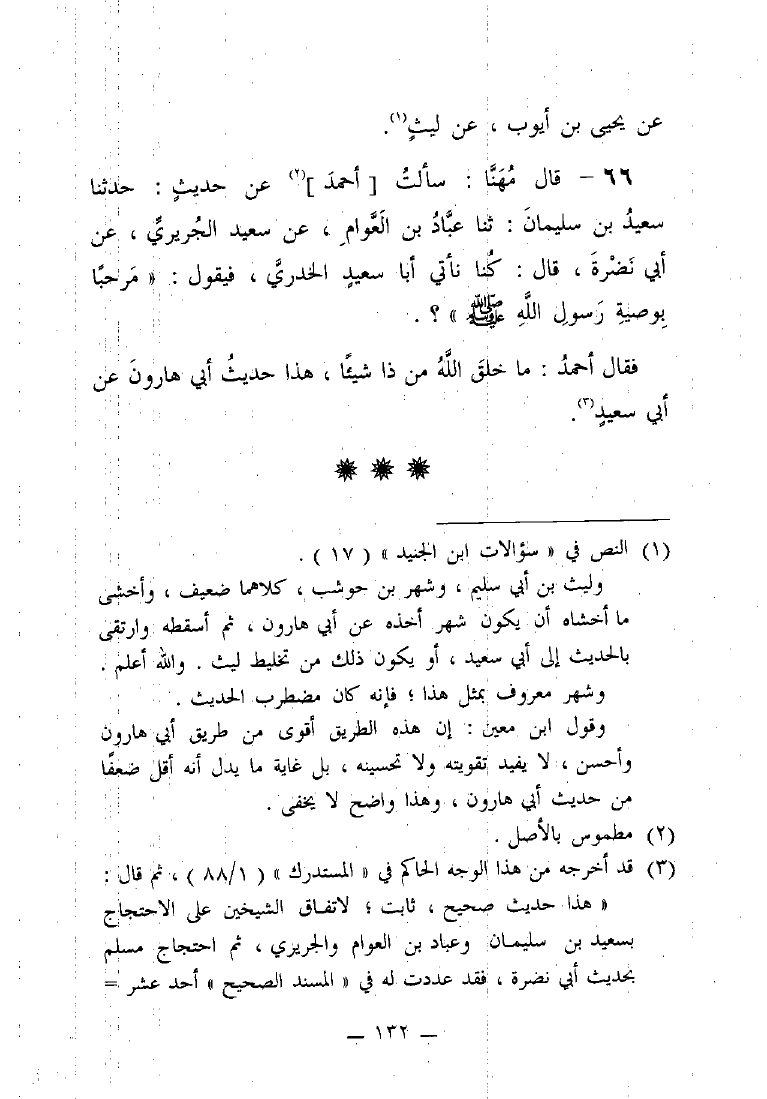 عن يحيى بن أيوب ، عن ليثٍ(١).
٦٦ - قال مُهَنَّا : سألتُ [ أحمدَ ](٢) عن حديثٍ : حدثنا
سعيدُ بن سليمانَ : ثنا عبَّادُ بن العَّوامِ ، عن سعيد الجُريريِّ ، عن
أبي نَضْرةَ ، قال : كُنا نأتي أبا سعيدٍ الخدريَّ ، فيقول : « مَرحبًا
بِوصيةِ رَسولِ اللَّهِ ﷺ » ؟ .
فقال أحمدُ : ما خلقَ اللَّهُ من ذا شيئًا ، هذا حديثُ أبي هارونَ عن
أبي سعيدٍ(٣).
(١) النص في « سؤالات ابن الجنيد » ( ١٧ ) .
وليث بن أبي سليم ، وشهر بن حوشب ، كلاهما ضعيف ، وأخشى
ما أخشاه أن يكون شهر أخذه عن أبي هارون ، ثم أسقطه وارتقى
بالحديث إلى أبي سعيد ، أو يكون ذلك من تخليط ليث . والله أعلم .
وشهر معروف بمثل هذا ؛ فإنه كان مضطرب الحديث .
وقول ابن معين : إن هذه الطريق أقوى من طريق أبي هارون
وأحسن ، لا يفيد تقويته ولا تحسينه ، بل غاية ما يدل أنه أقل ضعفًا
من حديث أبي هارون ، وهذا واضح لا يخفى .
(٢) مطموس بالأصل .
(٣) قد أخرجه من هذا الوجه الحاكم في « المستدرك » ( ٨٨/١ ) ، ثم قال :
« هذا حديث صحيح ، ثابت ؛ لاتفاق الشيخين على الاحتجاج
بسعيد بن سليمان وعباد بن العوام والجريري ، ثم احتجاج مسلم
بحديث أبي نضرة ، فقد عددت له في « المسند الصحيح » أحد عشر =
ــ ١٣٢ ــ